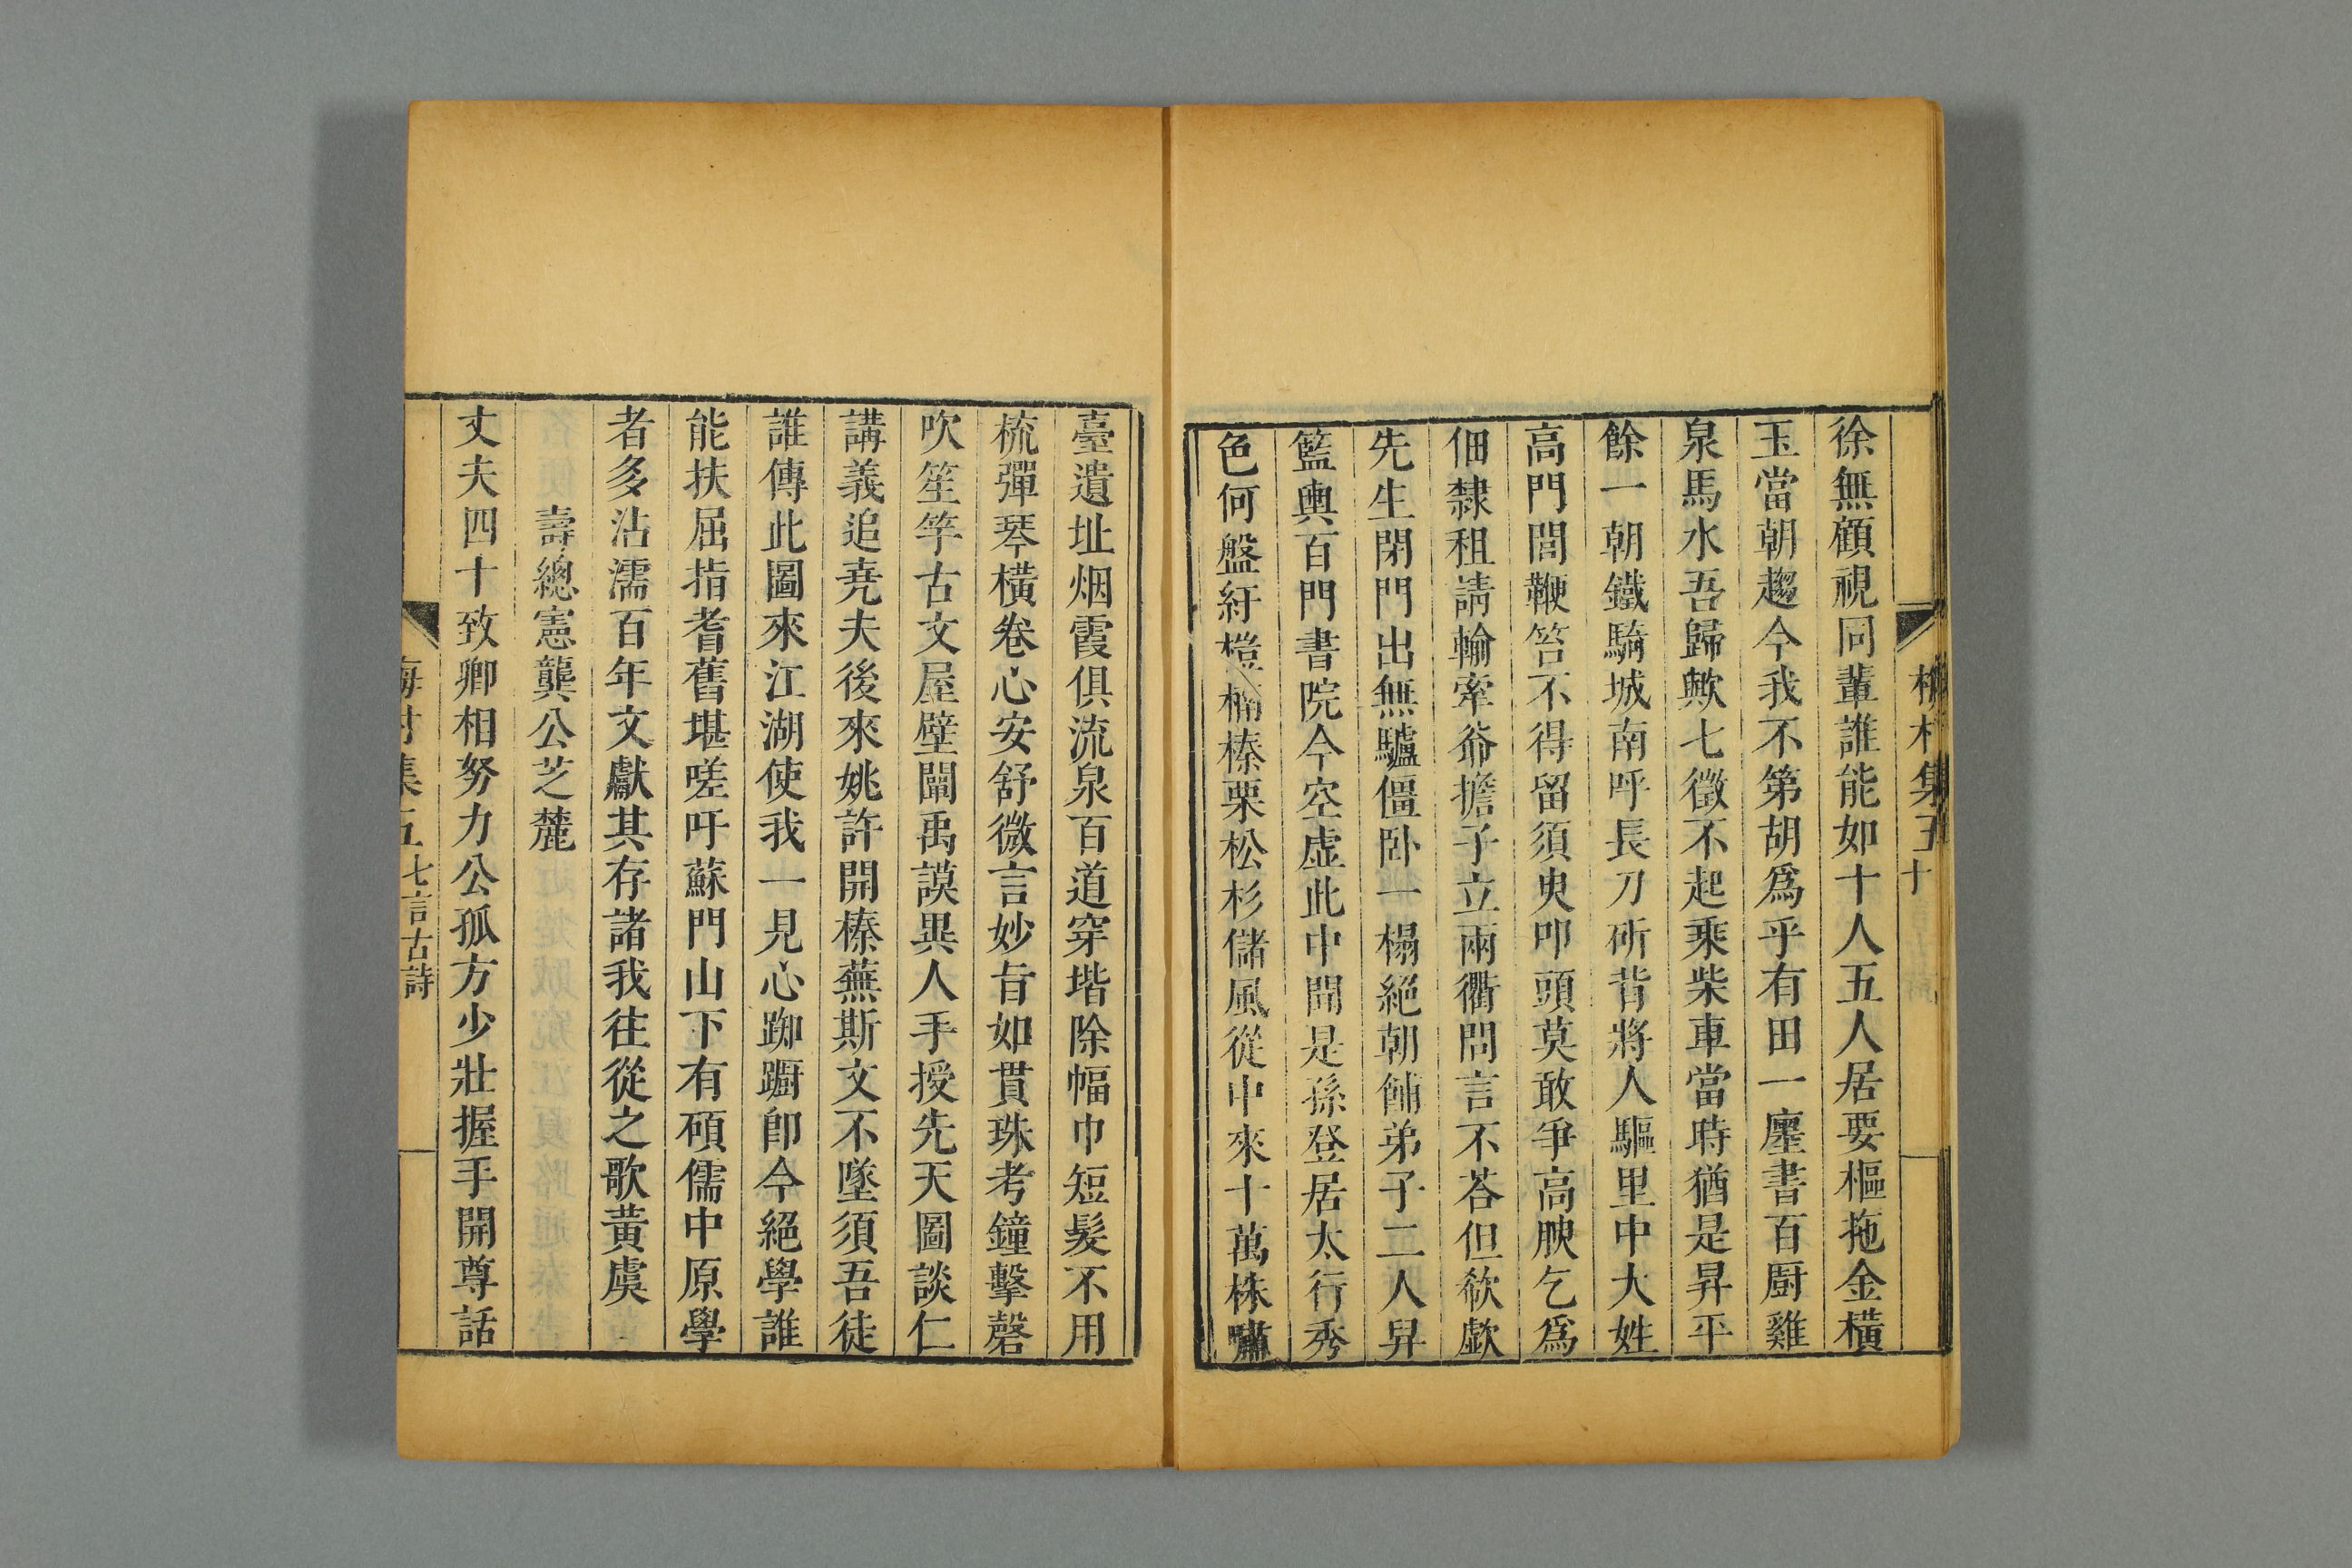 梅村集五 十
徐無顧視同輩誰能如十人五人居要樞拖金橫
玉當朝趨今我不第胡爲乎有田一廛書百厨雞
泉馬水吾歸歟七徵不起乘柴車當時猶是昇平
餘一朝鐵騎城南呼長刀斫背將人驅里中大姓
高門閭鞭笞不得留須臾叩頭莫敢爭高腴乞爲
佃隸租請輸牽爺擔子立兩衢問言不荅但欷歔
先生閉門出無驢僵卧一榻絕朝餔弟子二人舁
籃輿百門書院今空虛此中聞是孫登居太行秀
色何盤紆榿楠榛栗松杉儲風從中來十萬株嘯
臺遺址烟霞俱流泉百道穿堦除幅巾短髮不用
梳彈琴橫卷心安舒微言妙旨如貫珠考鐘擊磬
吹笙竽古文屋壁闡禹謨異人手授先天圖談仁
講義追堯夫後來姚許開榛蕪斯文不墜須吾徒
誰傳此圖來江湖使我一見心踟躕卽今絕學誰
能扶屈指耆舊堪嗟吁蘇門山下有碩儒中原學
者多沾濡百年文獻其存諸我往從之歌黃虞
壽總憲龔公芝麓
丈夫四十致卿相努力公孤方少壯握手開尊話
梅村集五 七言古詩